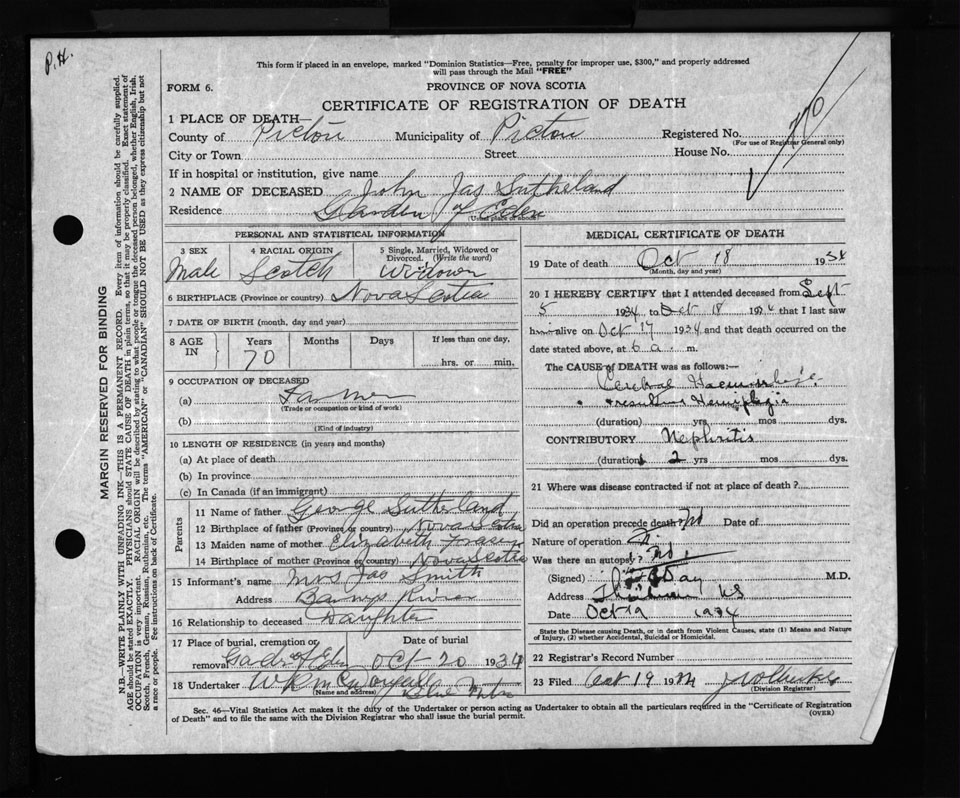 P.H.
This form if placed in an envelope, marked "Dominion Statistics—Free, penalty for improper use, $300," and properly addressed
will pass through the Mail "FREE"
FORM 6.
PROVINCE OF NOVA SCOTIA
CERTIFICATE OF REGISTRATION OF DEATH
1 PLACE OF DEATH—
County of Pictou Municipality of Pictou Registered No.
(For use of Registrar General only)
City or Town Street House No.
If in hospital or institution, give name
2 NAME OF DECEASED John Jas Sutherland
Residence Garden of Eden
(Usual place of abode)
PERSONAL AND STATISTICAL INFORMATION
3 SEX 4 RACIAL ORIGIN 5 Single, Married, Widowed or
Divorced. (Write the word)
Male Scotch Widower
6 BIRTHPLACE (Province or country) Nova Scotia
7 DATE OF BIRTH (month, day and year)
8 AGE IN Years Months Days If less than one day,
70 hrs. or min.
9 OCCUPATION OF DECEASED
(a) Farmer
(Trade or occupation or kind of work)
(b)
(Kind of industry)
10 LENGTH OF RESIDENCE (in years and months)
(a) At place of death
(b) In province
(c) In Canada (if an immigrant)
Parents
11 Name of father George Sutherland
12 Birthplace of father (Province or country) Nova Scotia
13 Maiden name of mother Elizabeth Fraser
14 Birthplace of mother (Province or country) Nova Scotia
15 Informant's name Mrs Jas Smith
Address Barneys River
16 Relationship to deceased Daughter
17 Place of burial, cremation or Date of burial
removal Gadr of Eden Oct 20 1934
18 Undertaker
(Name and address)
MEDICAL CERTIFICATE OF DEATH
19 Date of death Oct 18 1934
(Month, day and year)
20 I HEREBY CERTIFY that I attended deceased from Sept
5 1934 to Oct 18 1934 that I last saw
him alive on Oct 17 1934 and that death occurred on
date stated above, at 6 a. m.
The CAUSE of DEATH was as follows:—
Cerebral Haemorrhage
resulting Hemiplegia
(duration) yrs mos dys.
CONTRIBUTORY Nephritis
(duration) 2 yrs mos dys.
21 Where was disease contracted if not at place of death?
Did an operation precede death? No Date of
Nature of operation
Was there an autopsy? No
(Signed) Day M.D.
Address NS
Date Oct 19 1934
State the Disease causing Death, or in death from Violent Causes, state (1) Means and Nature
of Injury, (2) whether Accidental, Suicidal or Homicidal.
22 Registrar's Record Number
23 Filed Oct 19 1934
(Division Registrar)
Sec. 46—Vital Statistics Act makes it the duty of the Undertaker or person acting as Undertaker to obtain all the particulars required in the "Certificate of Registration
of Death" and to file the same with the Division Registrar who shall issue the burial permit.
(OVER)
MARGIN RESERVED FOR BINDING
N.B.—WRITE PLAINLY WITH UNFADING INK—THIS IS A PERMANENT RECORD. Every item of information should be carefully supplied.
AGE should be stated EXACTLY. PHYSICIANS should STATE CAUSE OF DEATH in plain terms, so that it may be properly classified. Exact statement of
OCCUPATION is very important. RACIAL ORIGIN will be described by stating to what people or tongue the deceased person belonged, whether English, Irish,
Scotch, French, German, Russian, Ruthenian, etc. The terms "AMERICAN" or "CANADIAN" SHOULD NOT BE USED as they express citizenship but not
a race or people. See instructions on back of Certificate.